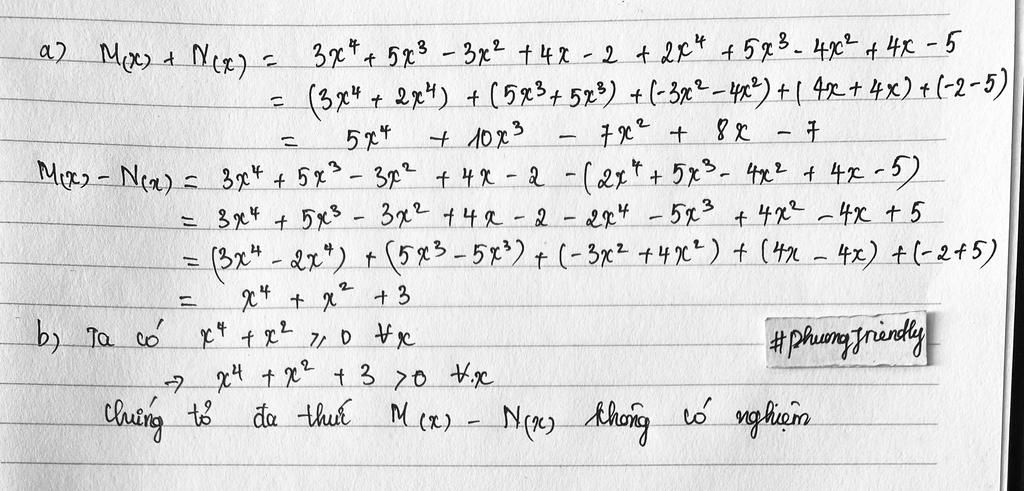 a) M(x) + N(x) = 3x⁴ + 5x³ - 3x² + 4x - 2 + 2x⁴ + 5x³ - 4x² + 4x - 5
= (3x⁴ + 2x⁴) + (5x³ + 5x³) + (-3x² - 4x²) + ( 4x + 4x) + (-2-5)
= 5x⁴ + 10x³ - 7x² + 8x - 7
M(x) - N(x) = 3x⁴ + 5x³ - 3x² + 4x - 2 - (2x⁴ + 5x³ - 4x² + 4x - 5)
= 3x⁴ + 5x³ - 3x² + 4x - 2 - 2x⁴ - 5x³ + 4x² - 4x + 5
= (3x⁴ - 2x⁴) + (5x³ - 5x³) + (-3x² + 4x²) + (4x - 4x) + (-2+5)
= x⁴ + x² + 3
b) Ta có x⁴ + x² ⩾ 0 ∀x
→ x⁴ + x² + 3 > 0 ∀.x
#phuongfriendly
Chứng tỏ đa thức M(x) - N(x) không có nghiệm